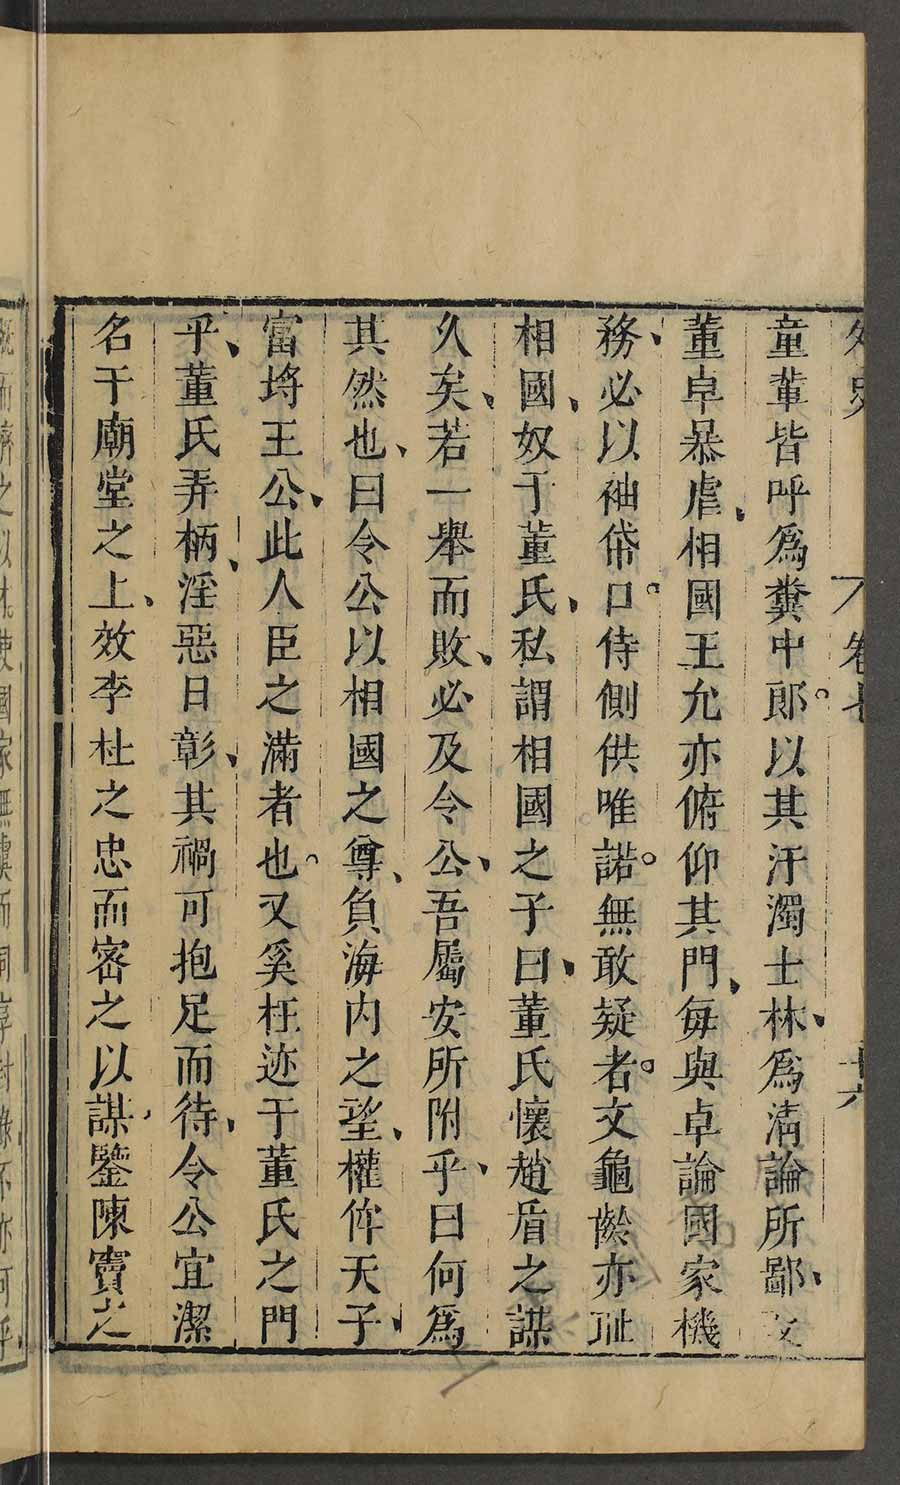 外史 卷七 十六
童輩皆呼爲糞中郎以其汙濁士林爲淸論所鄙
董卓暴虐相國王允亦俯仰其門每與卓論國家機
務必以袖帒口侍側供唯諾無敢疑者文龜齡亦耻
相國奴于董氏私謂相國之子曰董氏懷趙盾之謀
久矣若一舉而敗必及令公吾屬安所附乎曰何爲
其然也曰令公以相國之尊負海内之望權侔天子
富埒王公此人臣之滿者也又奚枉迹于董氏之門
乎董氏弄柄淫惡日彰其禍可抱足而待令公宜潔
名于廟堂之上效李杜之忠而密之以謀鑒陳竇之